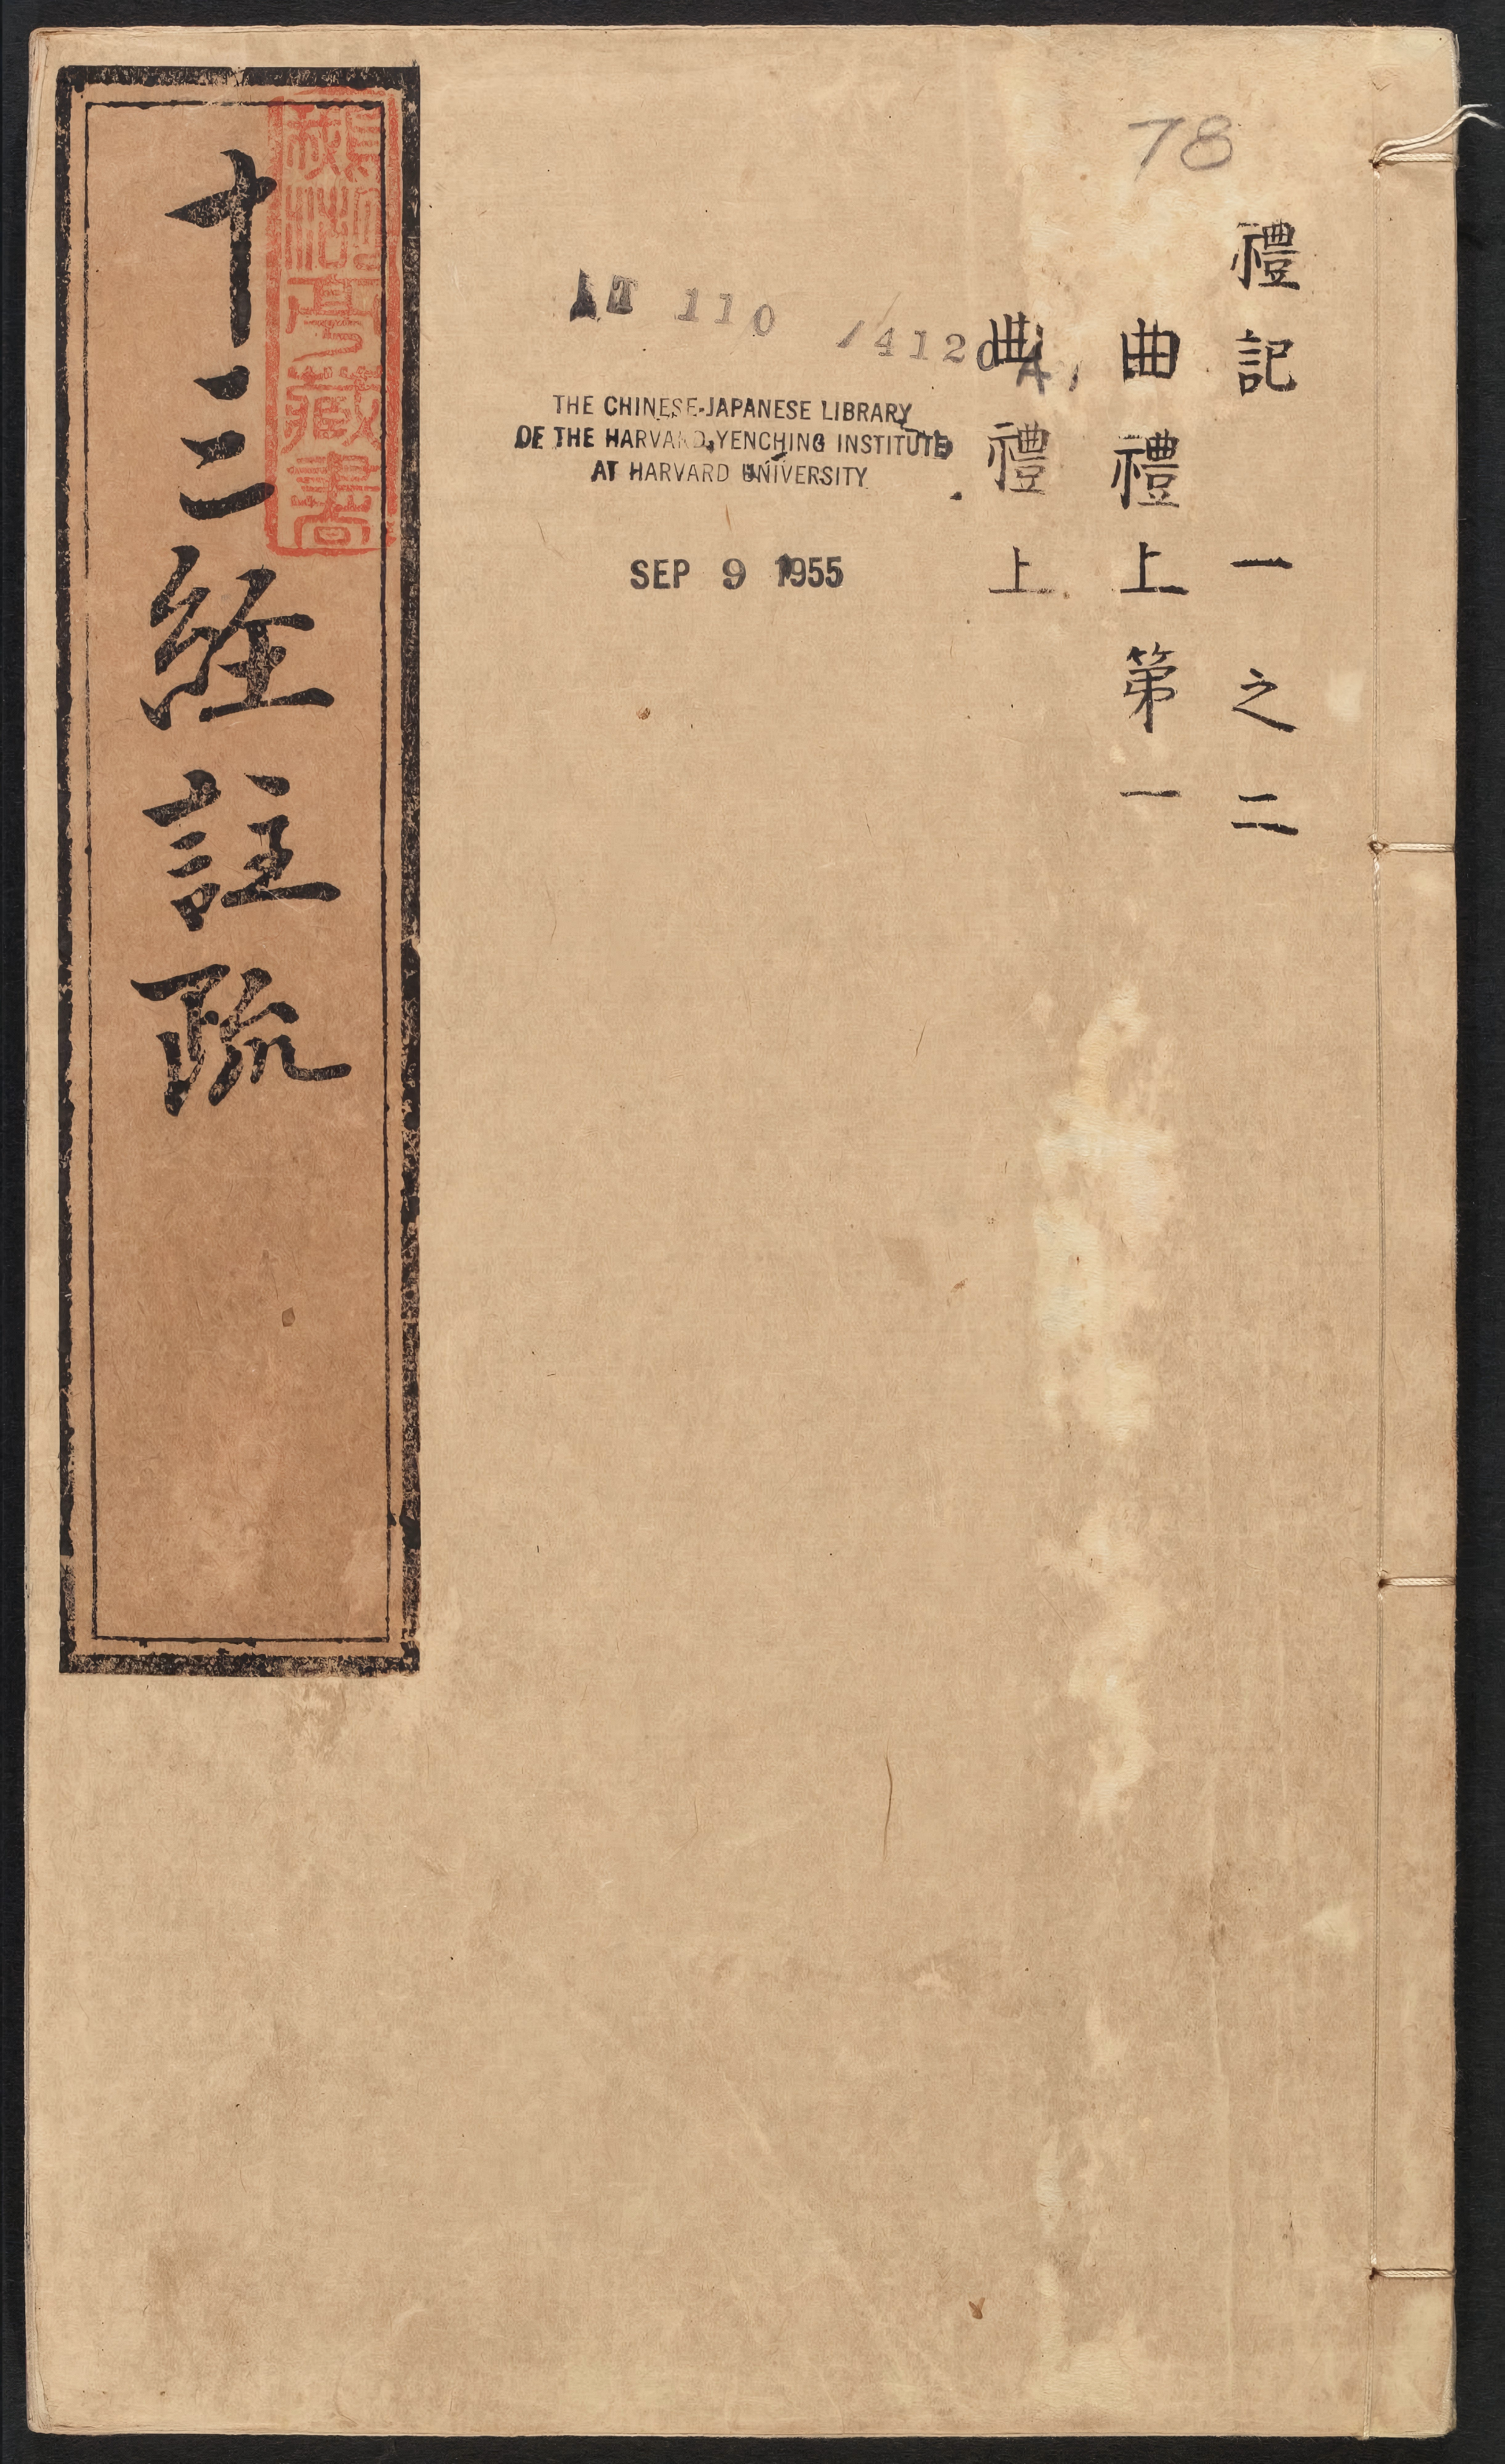 78
禮記 一之二
曲禮上第一
曲禮上
T 110 /4120
THE CHINESE-JAPANESE LIBRARY
OF THE HARVARD-YENCHING INSTITUTE
AT HARVARD UNIVERSITY
SEP 9 1955
十三経註疏
亭藏書